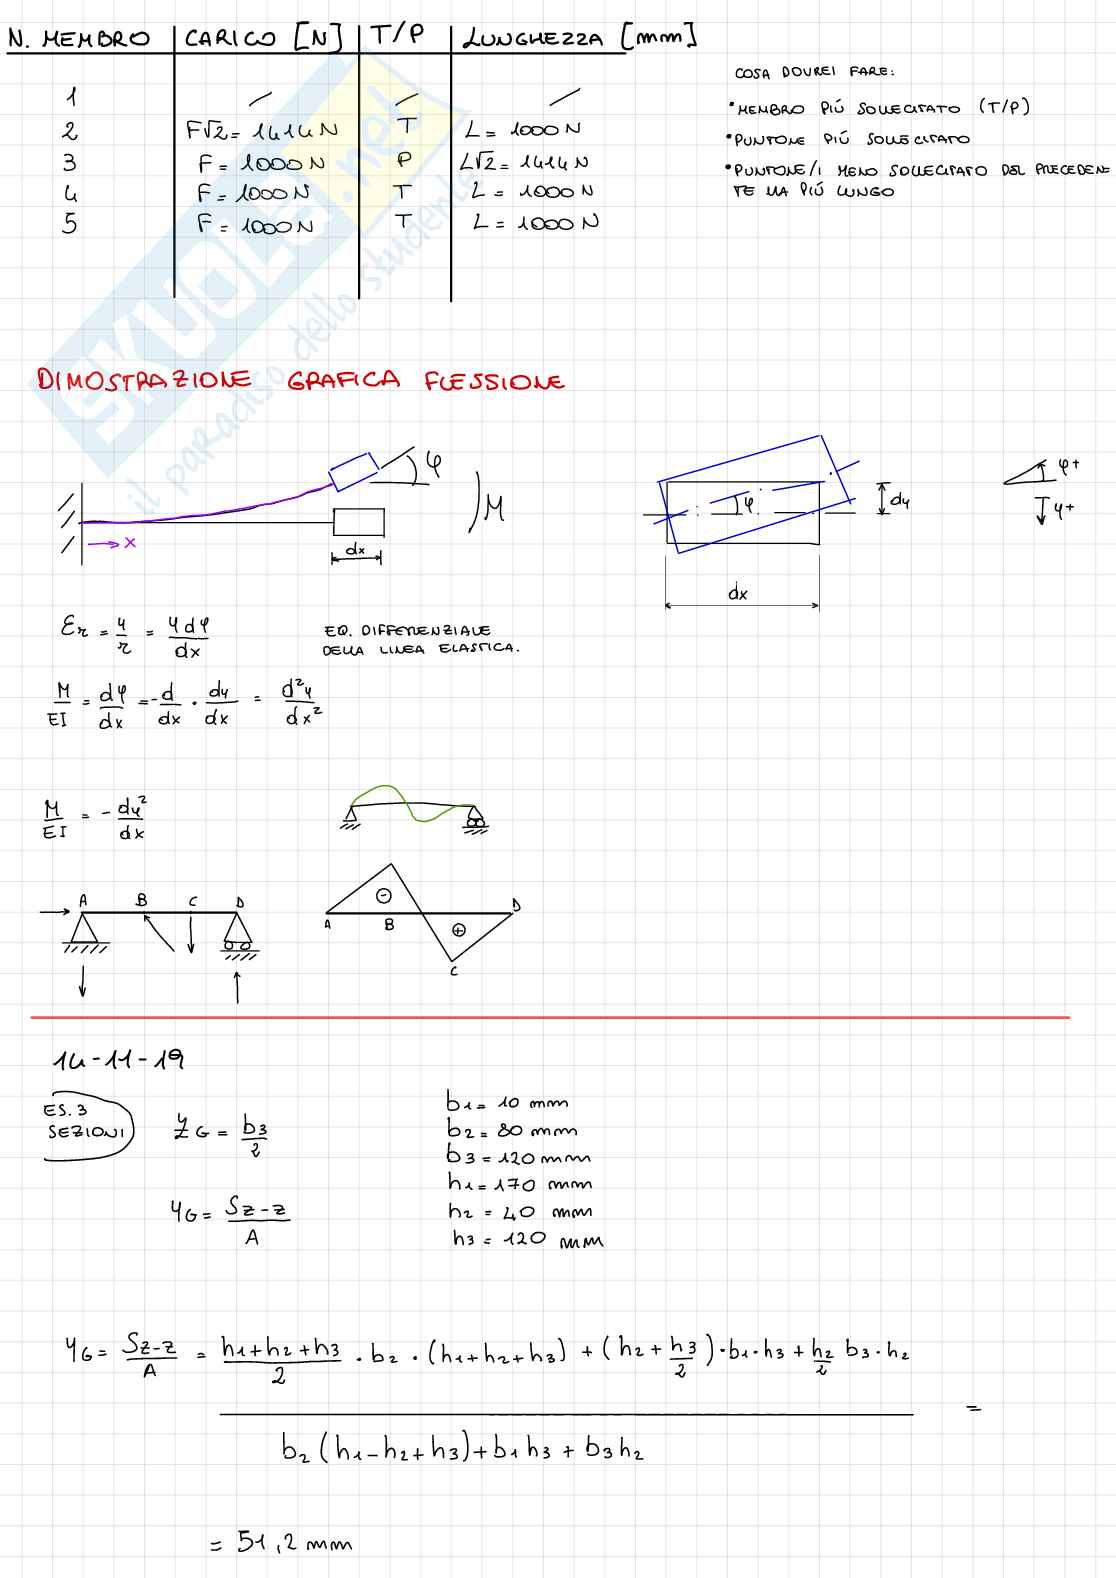 N. MEMBRO CARICO [N] T/P LUNGHEZZA [mm]
1 / / /
2 F√2 = 1414 N T L = 1000 N
3 F = 1000 N P L√2 = 1414 N
4 F = 1000 N T L = 1000 N
5 F = 1000 N T L = 1000 N
COSA DOVREI FARE:
• MEMBRO PIÚ SOLLECITATO (T/P)
• PUNTONE PIÚ SOLLECITATO
• PUNTONE/I MENO SOLLECITATO DEL PRECEDEN
TE MA PIÚ LUNGO
SKUOLA.net
il paradiso dello studente
DIMOSTRAZIONE GRAFICA FLESSIONE
φ
M
x
dx
φ
dy
dx
φ+
y+
εr = y/r = y dφ/dx
EQ. DIFFERENZIALE
DELLA LINEA ELASTICA.
M/EI = dφ/dx = -d/dx · dy/dx = d²y/dx²
M/EI = - dy²/dx
A B C D
A B C D
⊖ ⊕
14-11-19
ES. 3
SEZIONI
zG = b3/2
yG = Sz-z/A
b1 = 10 mm
b2 = 80 mm
b3 = 120 mm
h1 = 170 mm
h2 = 40 mm
h3 = 120 mm
yG = Sz-z/A = h1+h2+h3/2 · b2 · (h1+h2+h3) + (h2 + h3/2) · b1 · h3 + h2/2 b3 · h2
=
b2 (h1-h2+h3) + b1 h3 + b3 h2
= 51,2 mm